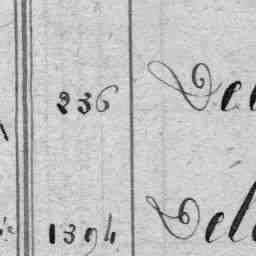 236 De
1394 Del